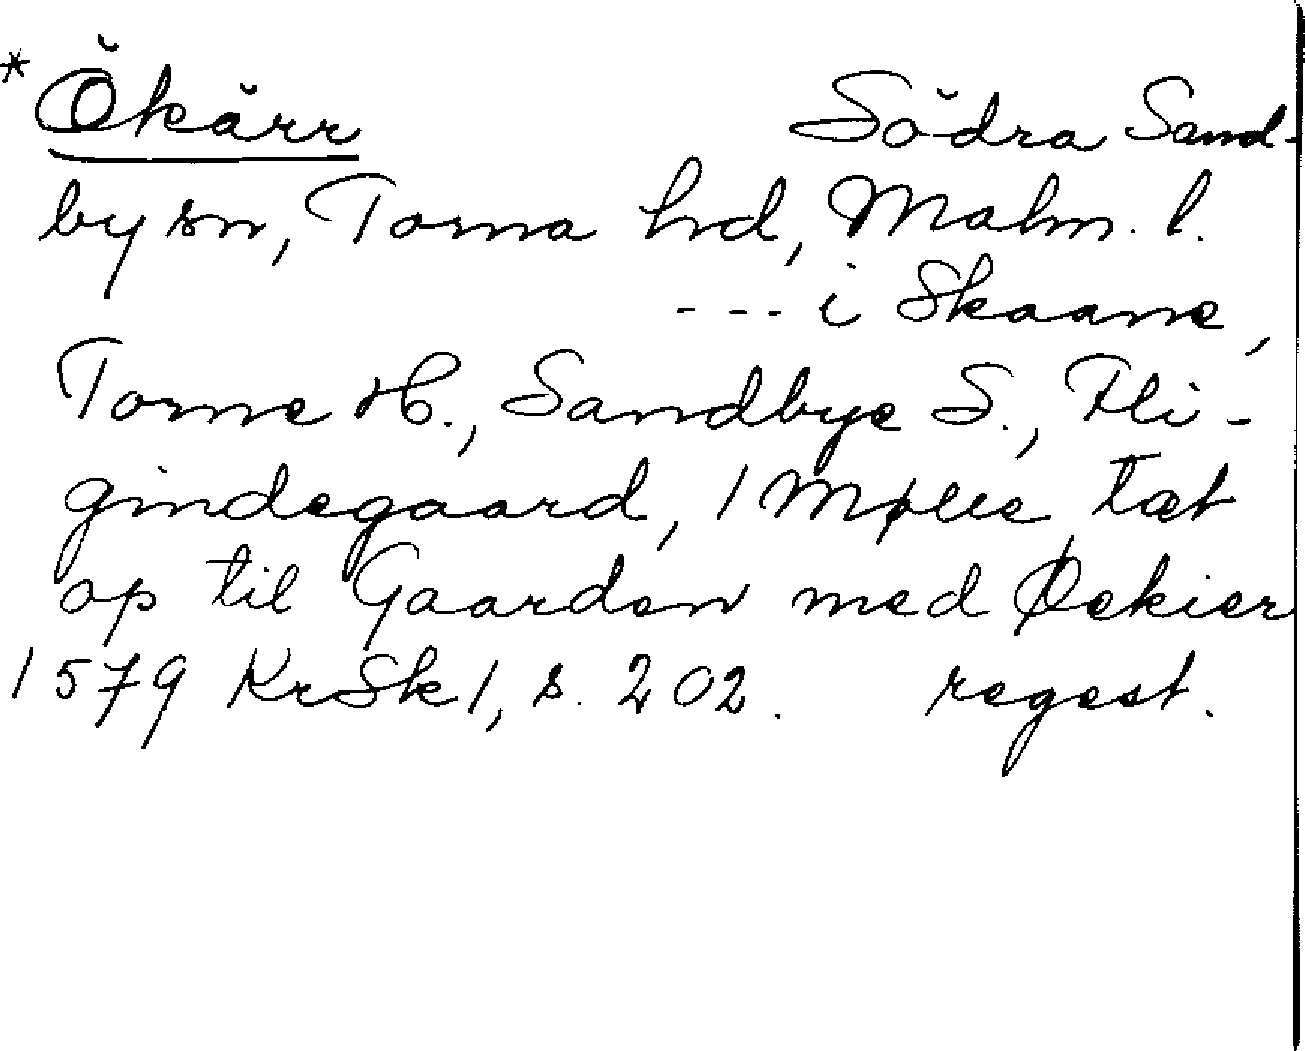 *Ökärr Södra Sand-
by sn, Torna hd, Malm. l.
--- i Skaane,
Torne H., Sandbye S., Fli-
gindegaard, 1 Mølle tæt
op til Gaarden med Øekier
1579 KrSk1, s. 202. regest.